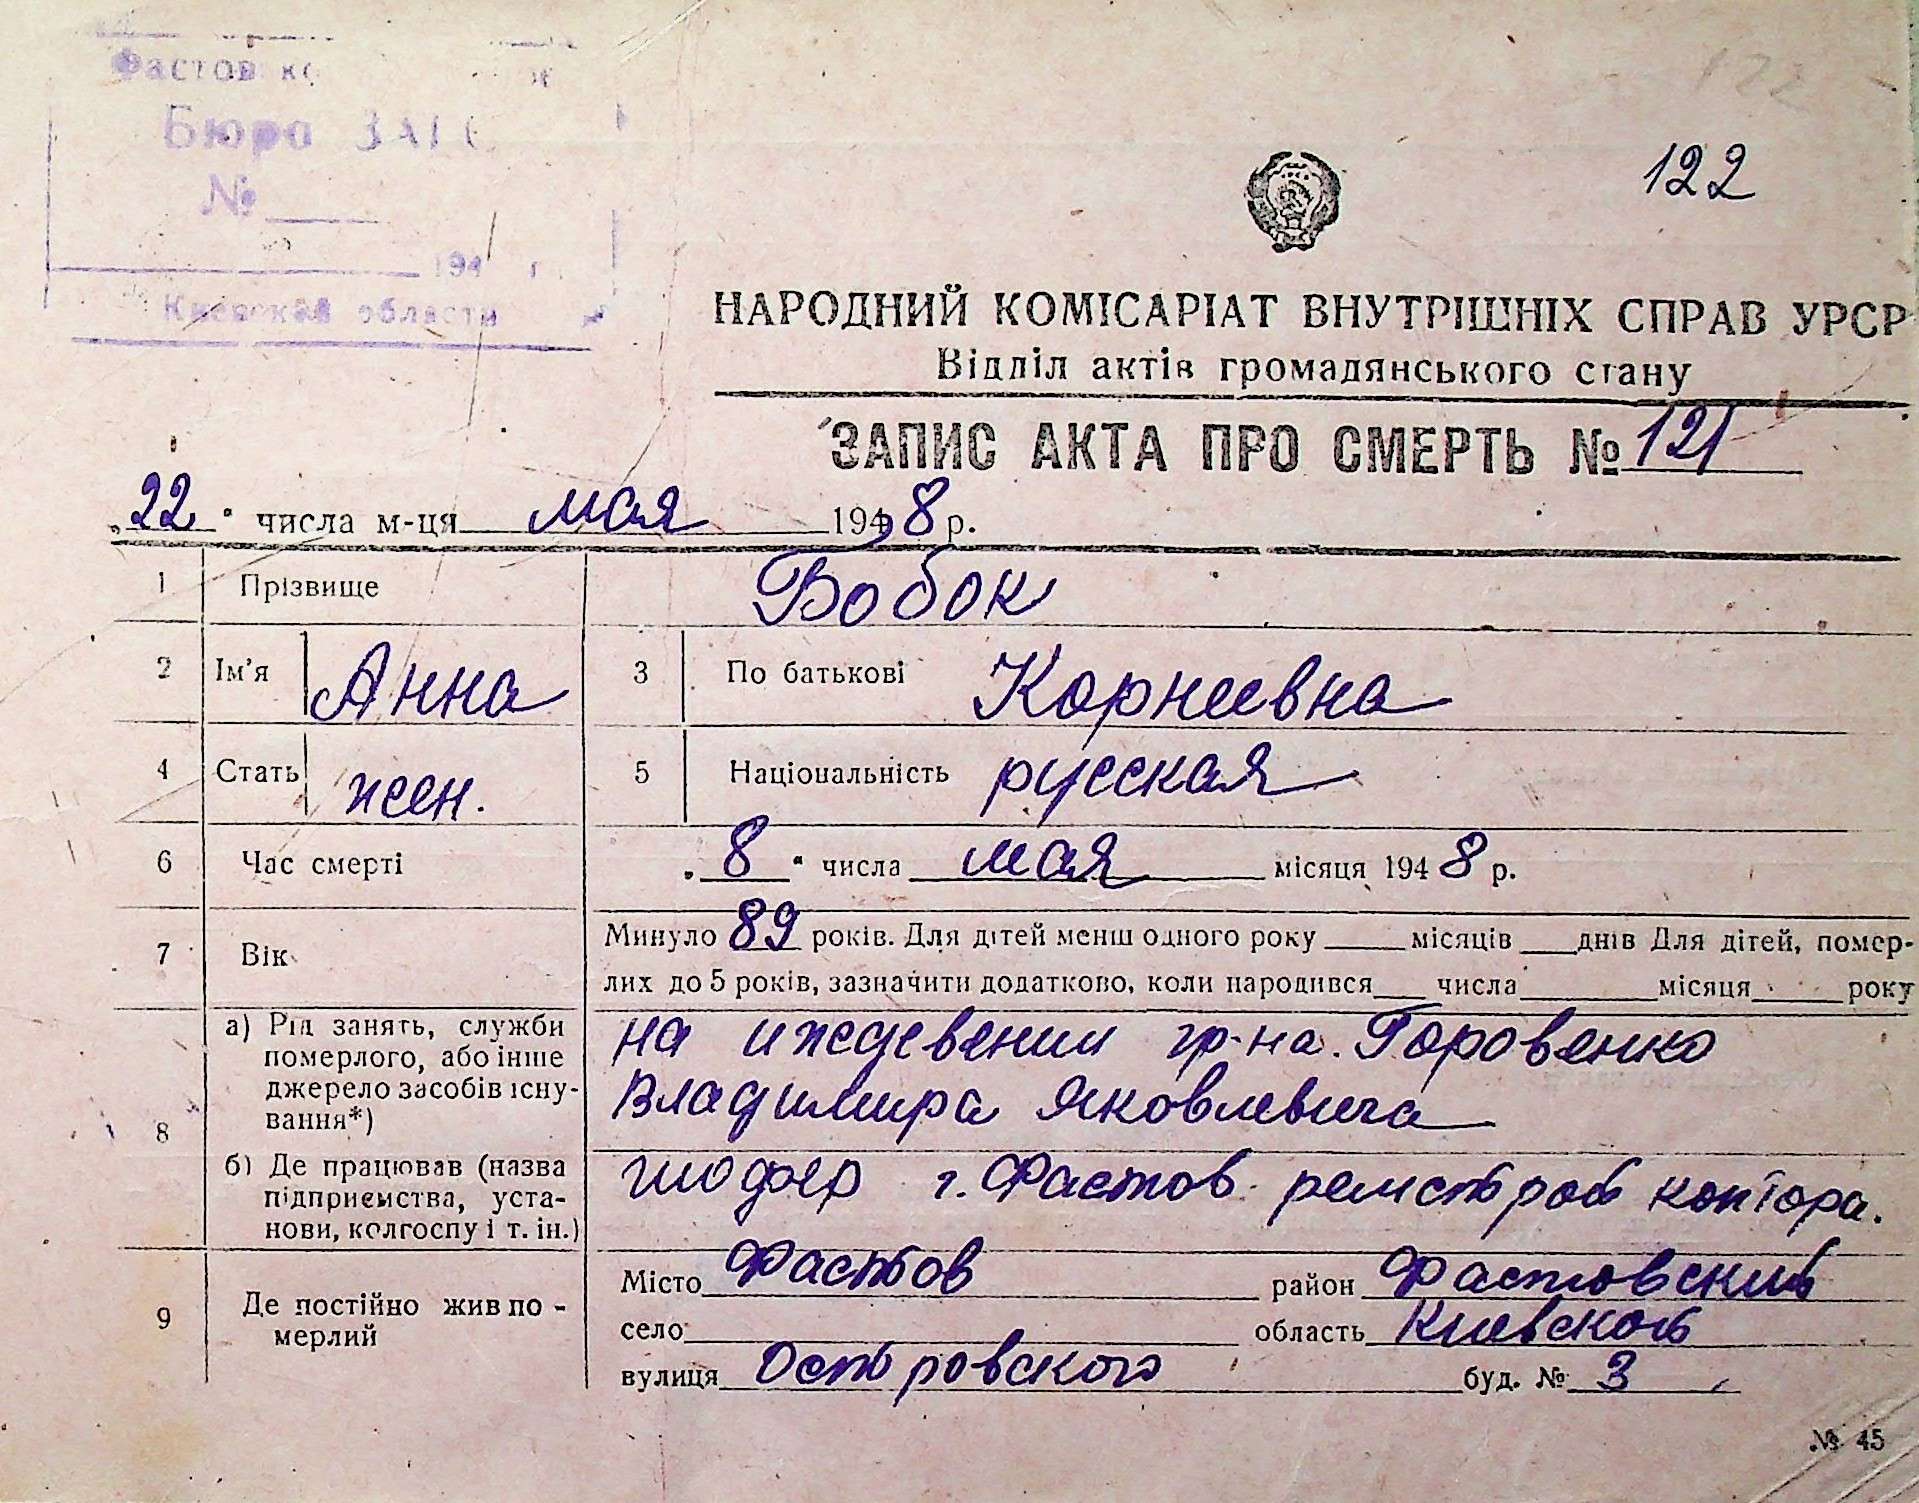 122
Бюро ЗАГС
№
194 г.
Киевской области
122
НАРОДНИЙ КОМІСАРІАТ ВНУТРІШНІХ СПРАВ УРСР
Відділ актів громадянського стану
ЗАПИС АКТА ПРО СМЕРТЬ № 121
„22“ числа м-ця мая 1948 р.
1 Прізвище Бобок
2 Ім'я Анна 3 По батькові Корнеевна
4 Стать жен. 5 Національність русская
6 Час смерті „8“ числа мая місяця 1948 р.
7 Вік Минуло 89 років. Для дітей менш одного року місяців днів Для дітей, помер-
лих до 5 років, зазначити додатково, коли народився числа місяця року
8 а) Рід занять, служби померлого, або інше джерело засобів існу-вання*) на иждевении гр-на. Горовенко
Владимира Яковлевича
б) Де працював (назва підприємства, уста-нови, колгоспу і т. ін.) шофер г. Фастов контора.
9 Де постійно жив по-мерлий Місто Фастов район Фастовский
село область Киевской
вулиця Островского буд. № 3
№ 45